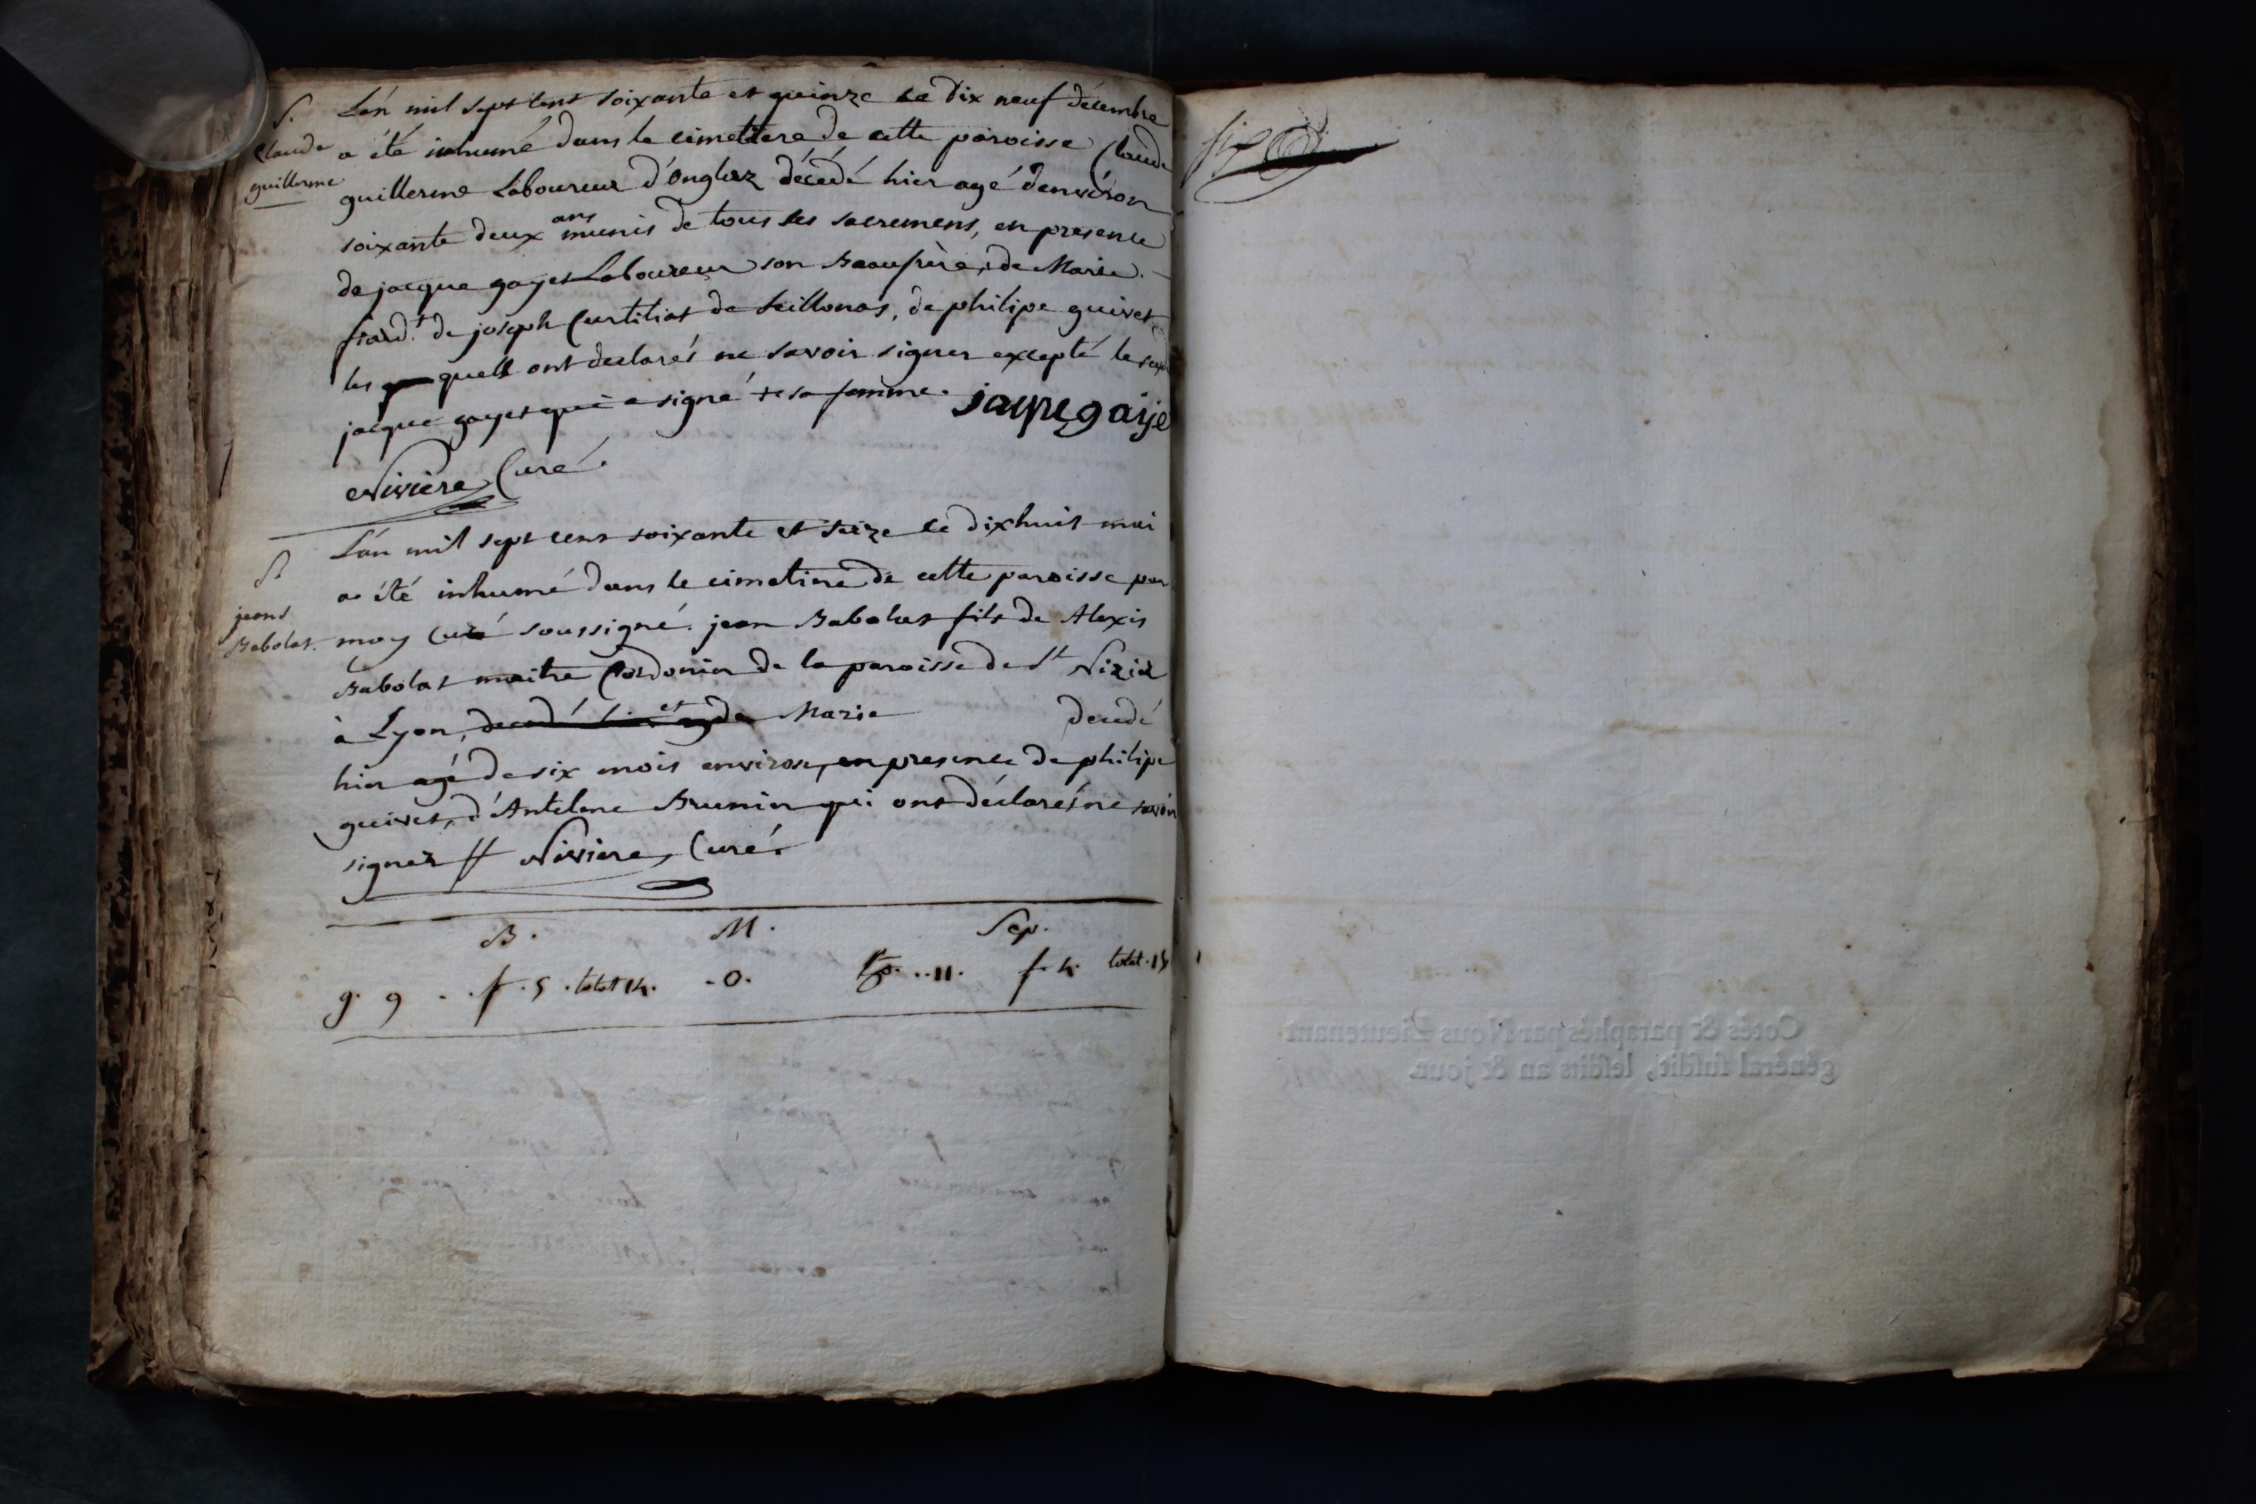 S.
Claude
guillerme
L'an mil sept cent soixante et quinze le dix neuf décembre
a été inhumé dans le cimettere de cette paroisse Claude
guillerme Laboureur d'onglaz décédé hier agé d'environ
soixante deux ans munis de tous les sacremens, en presence
de jacque gayet Laboureur son Beaufrère, de Marie
de joseph Curtiliat de Seillonas, de philipe guivet
les quells ont declarés ne savoir signer excepté le
jacque gayet qui a signé + sa femme. jacque gaije
Nivière Curé.
S.
jean
Babolat.
L'an mil sept cent soixante et seize le dixhuit mai
a été inhumé dans le cimetiere de cette paroisse par
moy Curé soussigné. jean Babolat fils de Alexis
Babolat maitre Cordonier de la paroisse de St Nizier
à Lyon, et de Marie decedé
hier agé de six mois environ, en presence de philipe
guivet, d'Antelme Brunier qui ont déclarés ne savoir
signer // Niviere, Curé.
B. M. Sep.
g. 9 . . f. 5 . total 14. . 0. g. .. 11. f. 4. total . 15
Cotés & paraphés par Nous Lieutenant
général susdit, lesdits an & jour